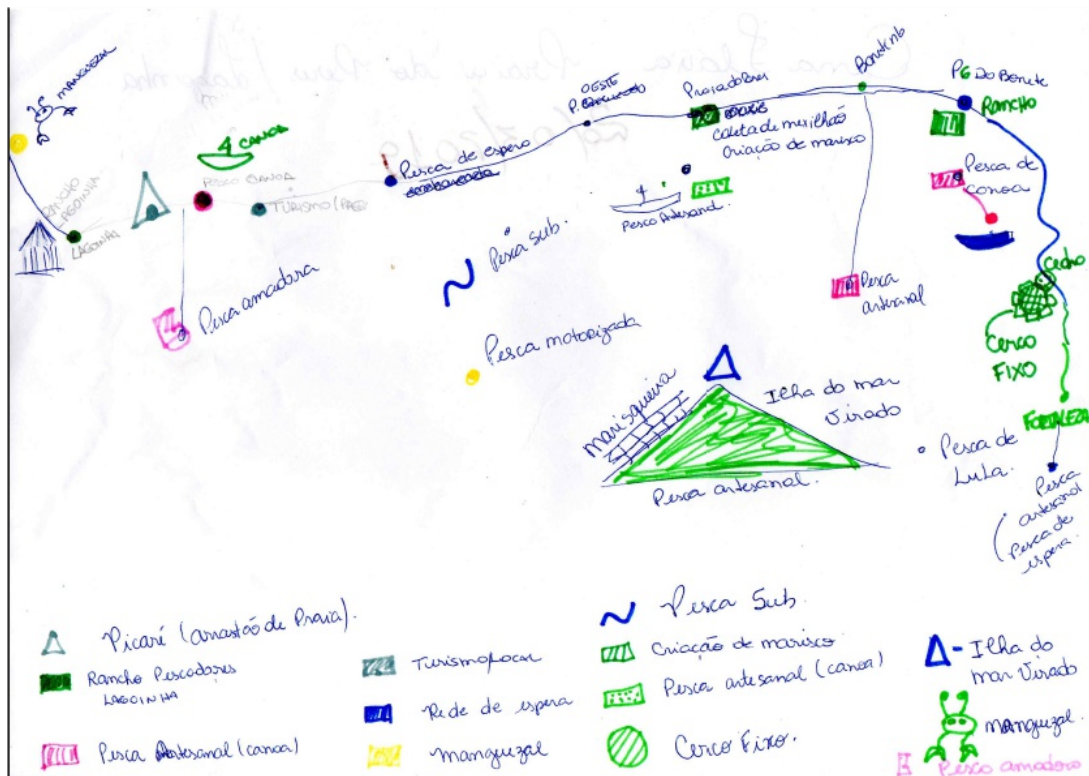 MANGUEZAL
RANCHO
LAGOINHA
LAGOINHA
CANOA
PESCA CANOA
TURISMO
Pesca amadora
Pesca de espera
OESTE
P.
Pesca Sub.
Pesca motorizada
coleta de mexilhão
criação de marisco
Pesca Artesanal
Pesca
artesanal
PG Do Bonete
RANCHO
Pesca de
canoa
Cedro
CERCO
FIXO
FORTALEZA
Marisqueira
Ilha do mar
Virado
Pesca artesanal.
Pesca de
Lula.
Pesca
artesanal
Pesca de
espera.
Picaré (arrastão de Praia).
Rancho Pescadores
LAGOINHA
Pesca Artesanal (canoa)
Turismo local
Rede de espera
manguezal
Pesca Sub.
Criação de marisco.
Pesca artesanal (canoa)
Cerco Fixo.
- Ilha do
mar Virado
manguezal.
Pesca amadora